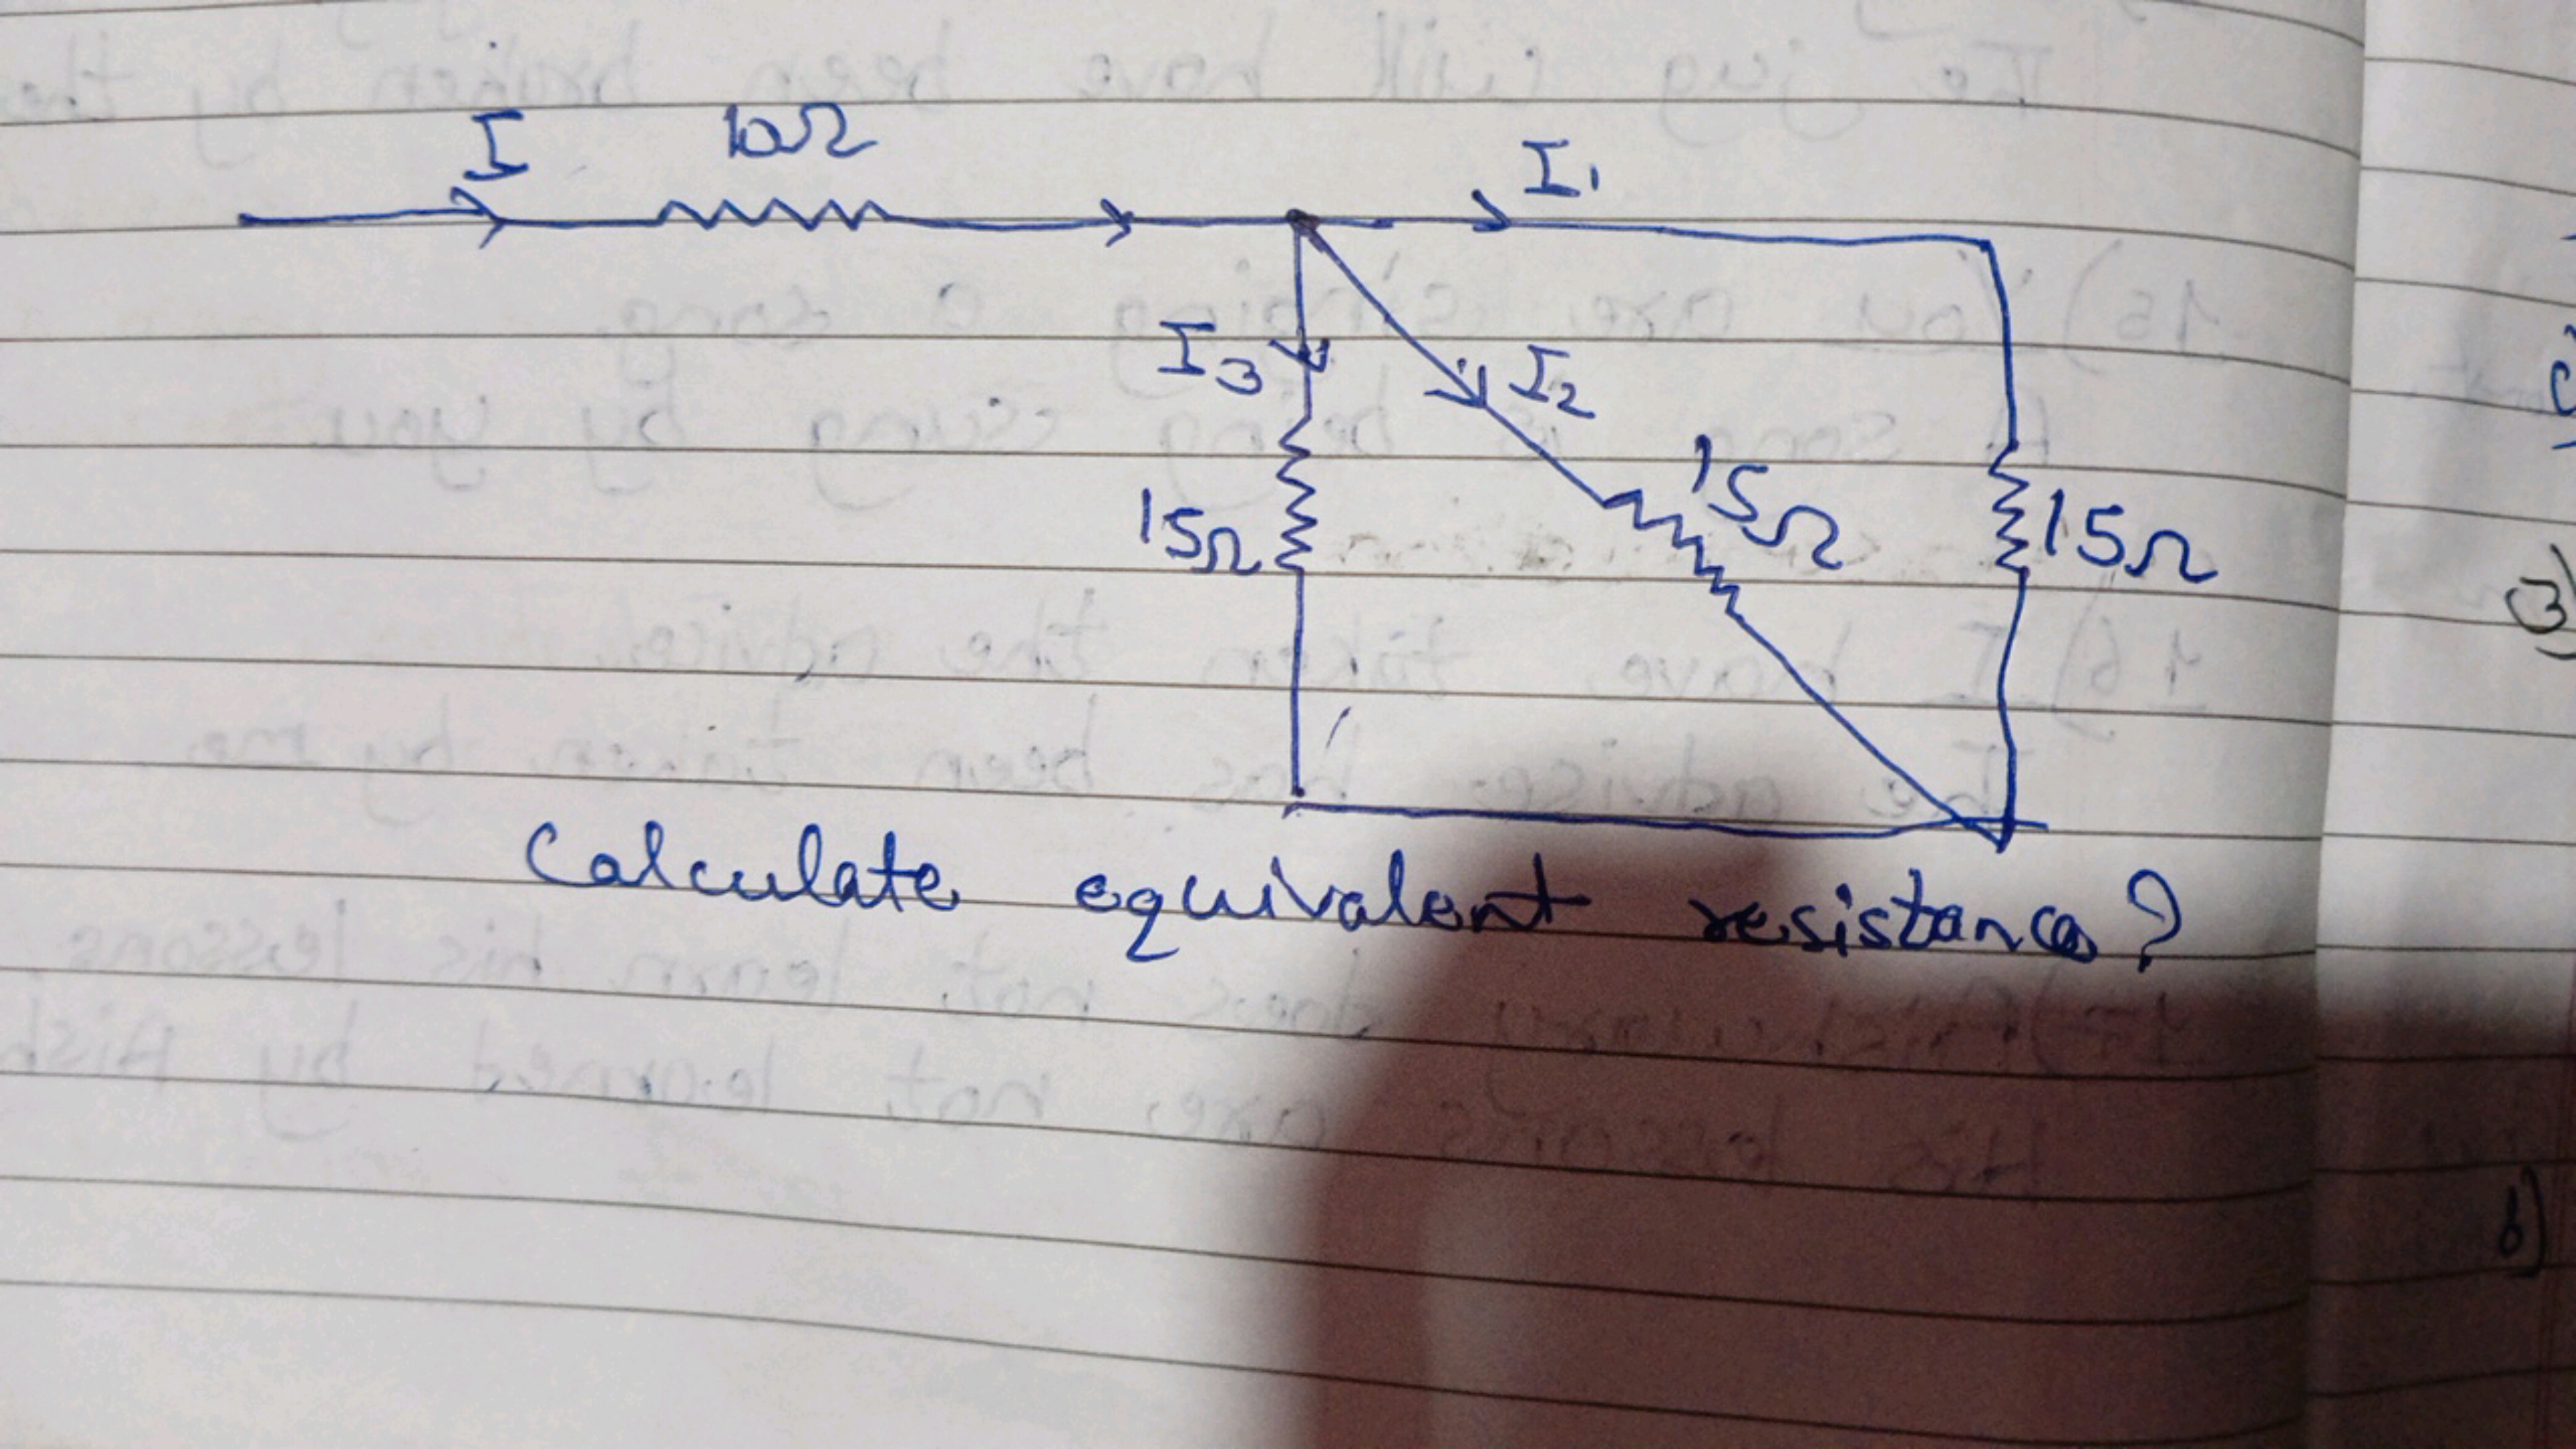 I 10Ω I₁
I₃ I₂
15Ω 15Ω 15Ω
Calculate equivalent resistance?
3)